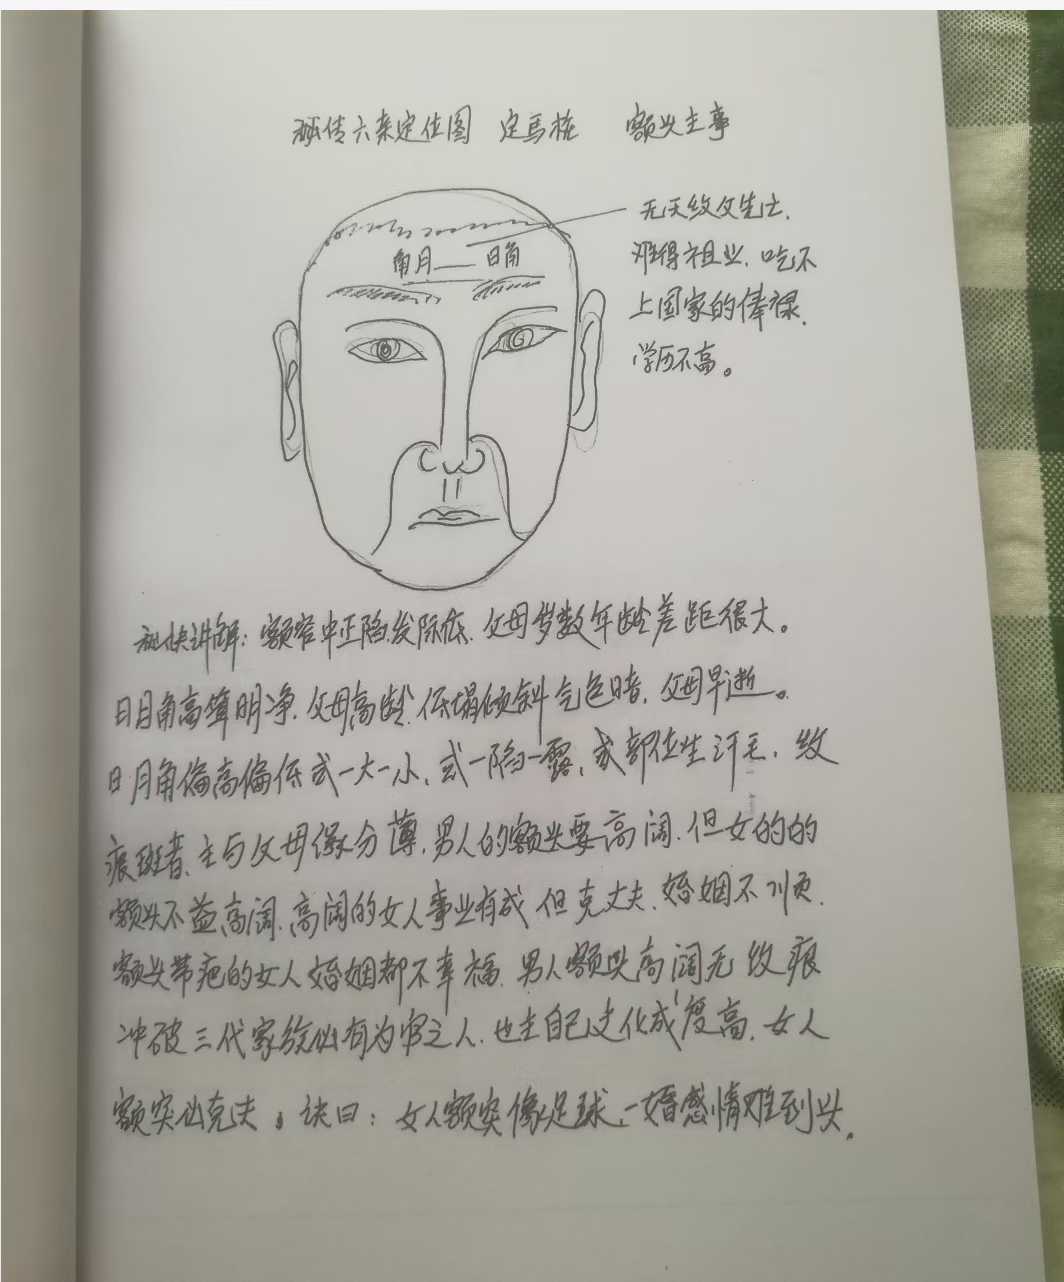 秘传六亲定位图 定马桩 额头主事
无天纹父先亡.
难得祖业.吃不
上国家的俸禄.
学历不高。
角月 日角
秘诀讲解:额窄中正陷.发际低.父母岁数年龄差距很大。
日月角高耸明净.父母高龄.低塌倾斜气色暗.父母早逝。
日月角偏高偏低或一大一小.或一陷一露.或部位生汗毛.纹
痕斑者.主与父母缘分薄.男人的额头要高阔.但女的的
额头不益高阔.高阔的女人事业有成但克丈夫.婚姻不顺.
额头带疤的女人婚姻都不幸福.男人额头高阔无纹痕
冲破三代家族必有为官之人.也主自己文化成度高.女人
额突必克夫。诀曰:女人额突像足球.一婚感情难到头.